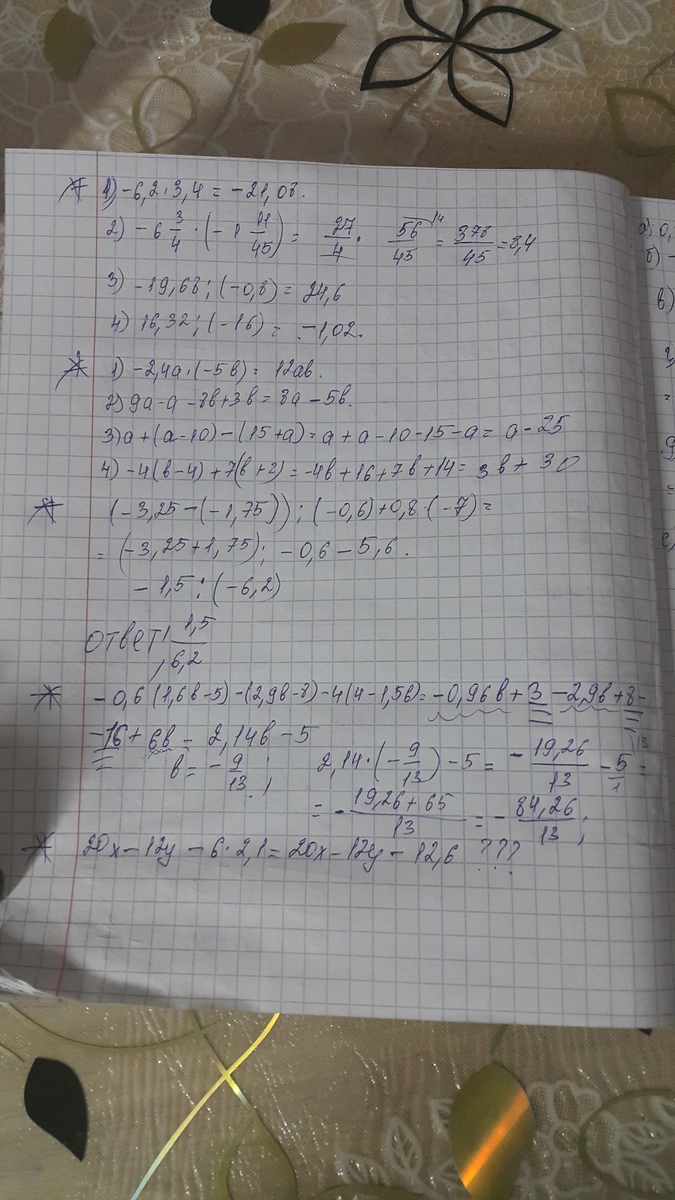 * 1) -6,2·3,4 = -21,08.
2) -6 3/4 · (-1 11/45) = 27/4 · 56/45 = 378/45 = 8,4
3) -19,68 : (-0,8) = 24,6
4) 16,32 : (-16) = -1,02.
* 1) -2,4a·(-5в) = 12aв.
2) 9a-a-8в+3в = 8a-5в.
3) a+(a-10)-(15+a) = a+a-10-15-a = a-25
4) -4(в-4)+7(в+2) = -4в+16+7в+14 = 3в+30
* (-3,25-(-1,75)) : (-0,6)+0,8·(-7) =
= (-3,25+1,75) : -0,6-5,6.
-1,5 : (-6,2)
ответ: 1,5/6,2
* -0,6(1,6в-5)-(2,9в-8)-4(4-1,5в) = -0,96в+3-2,9в+8-
-16+6в = 2,14в-5
в = -9/13; 2,14·(-9/13)-5 = -19,26/13 - 5/1 =
= -19,26+65/13 = -84,26/13;
* 20x-12y-6·2,1 = 20x-12y-12,6 ???